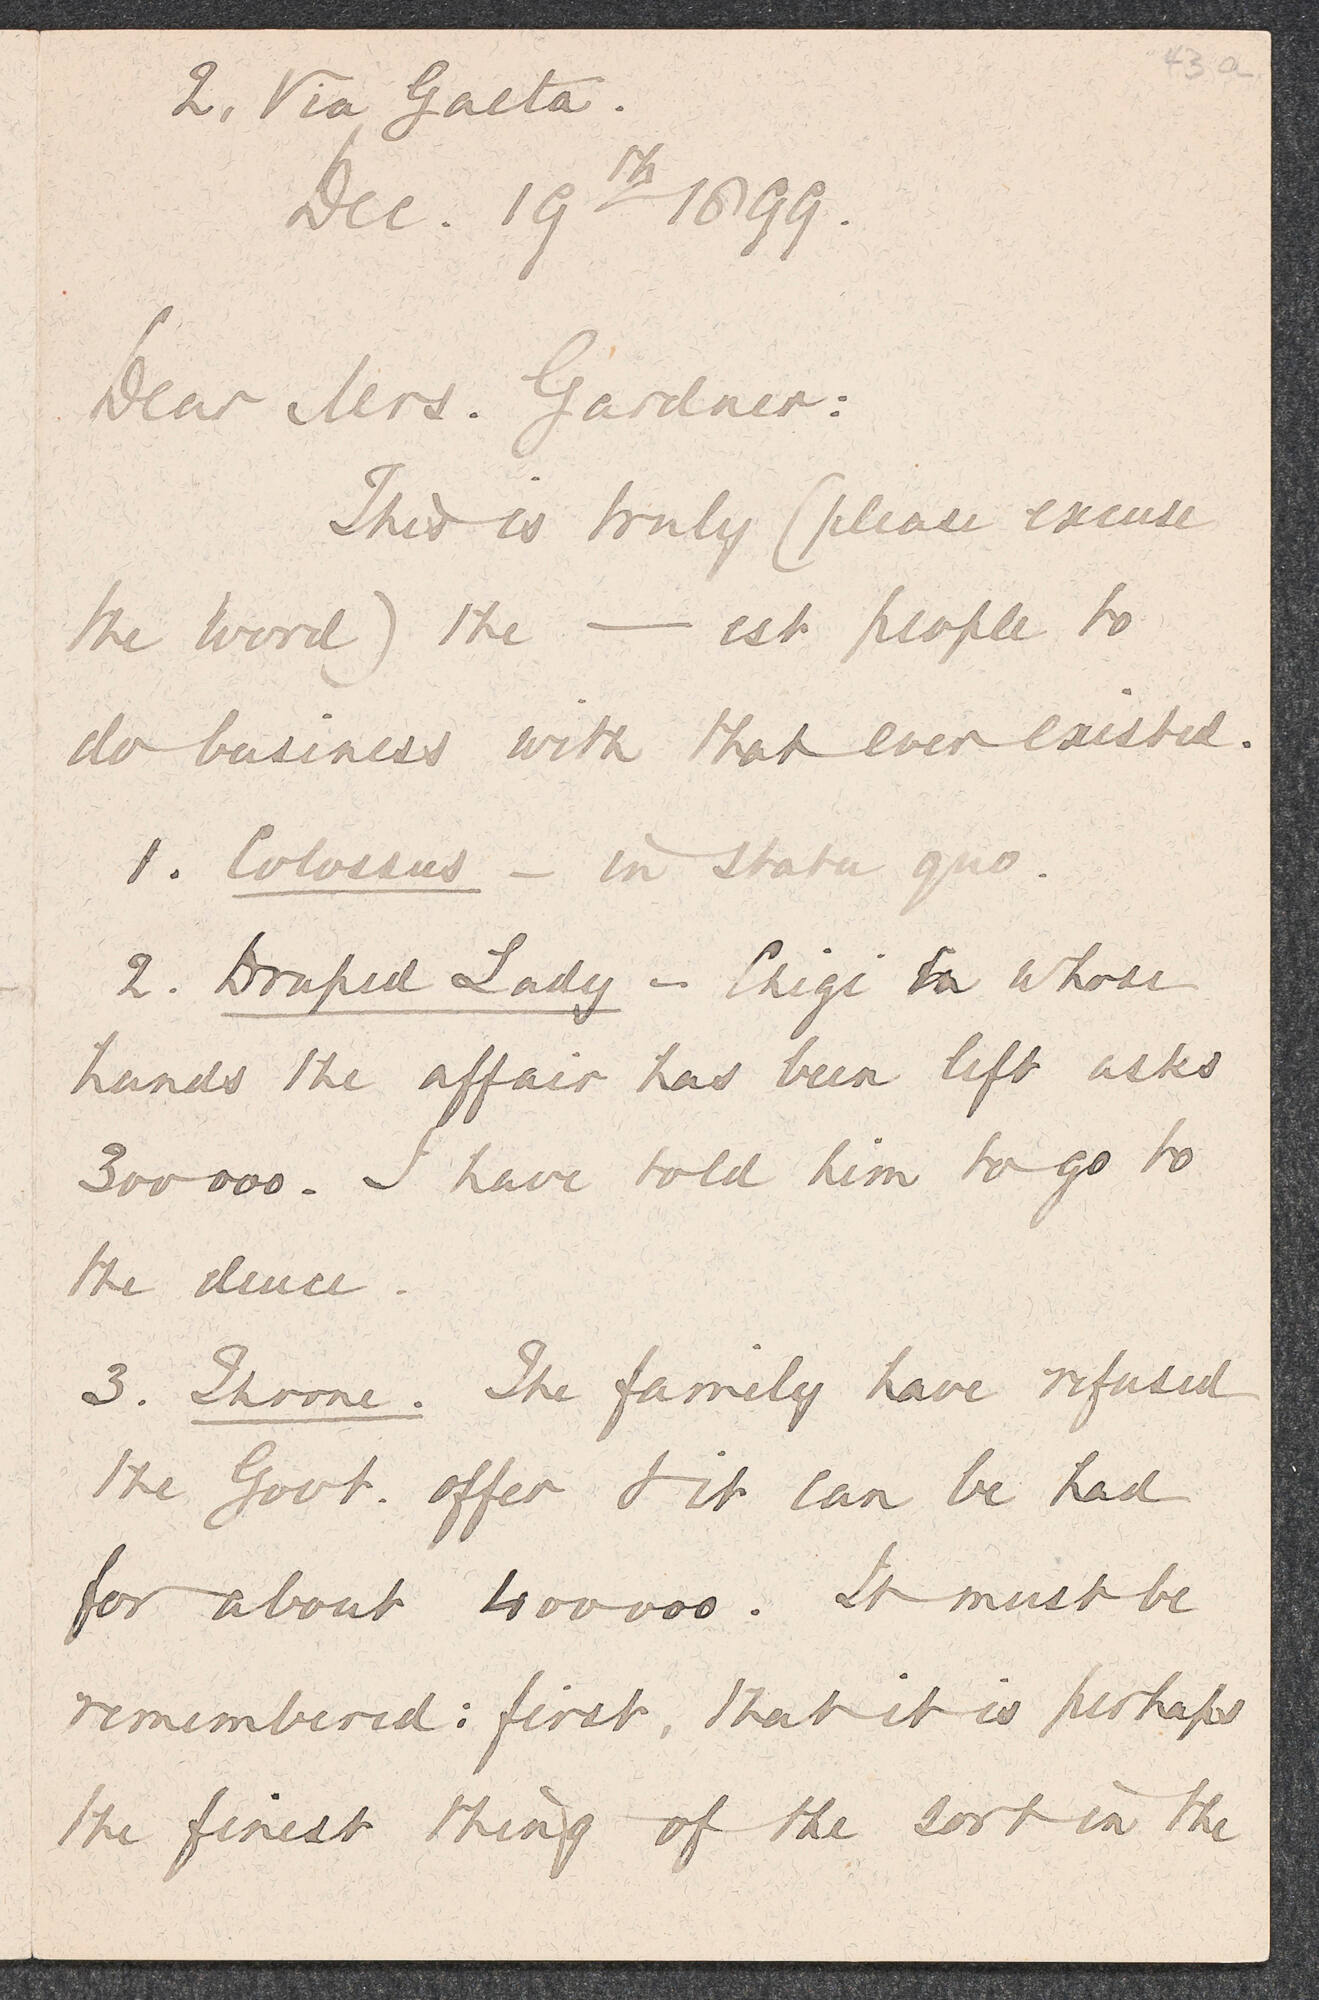 43 a
2, Via Gaeta.
Dec. 19th 1899.
Dear Mrs. Gardner:
This is truly (please excuse
the word) the — est people to
do business with that ever existed.
1. Colossus – in statu quo.
2. Draped Lady – Chigi in whose
hands the affair has been left asks
300000. I have told him to go to
the deuce.
3. Throne. The family have refused
the Govt. offer & it can be had
for about 400000. It must be
remembered: first, that it is perhaps
the finest thing of the sort in the